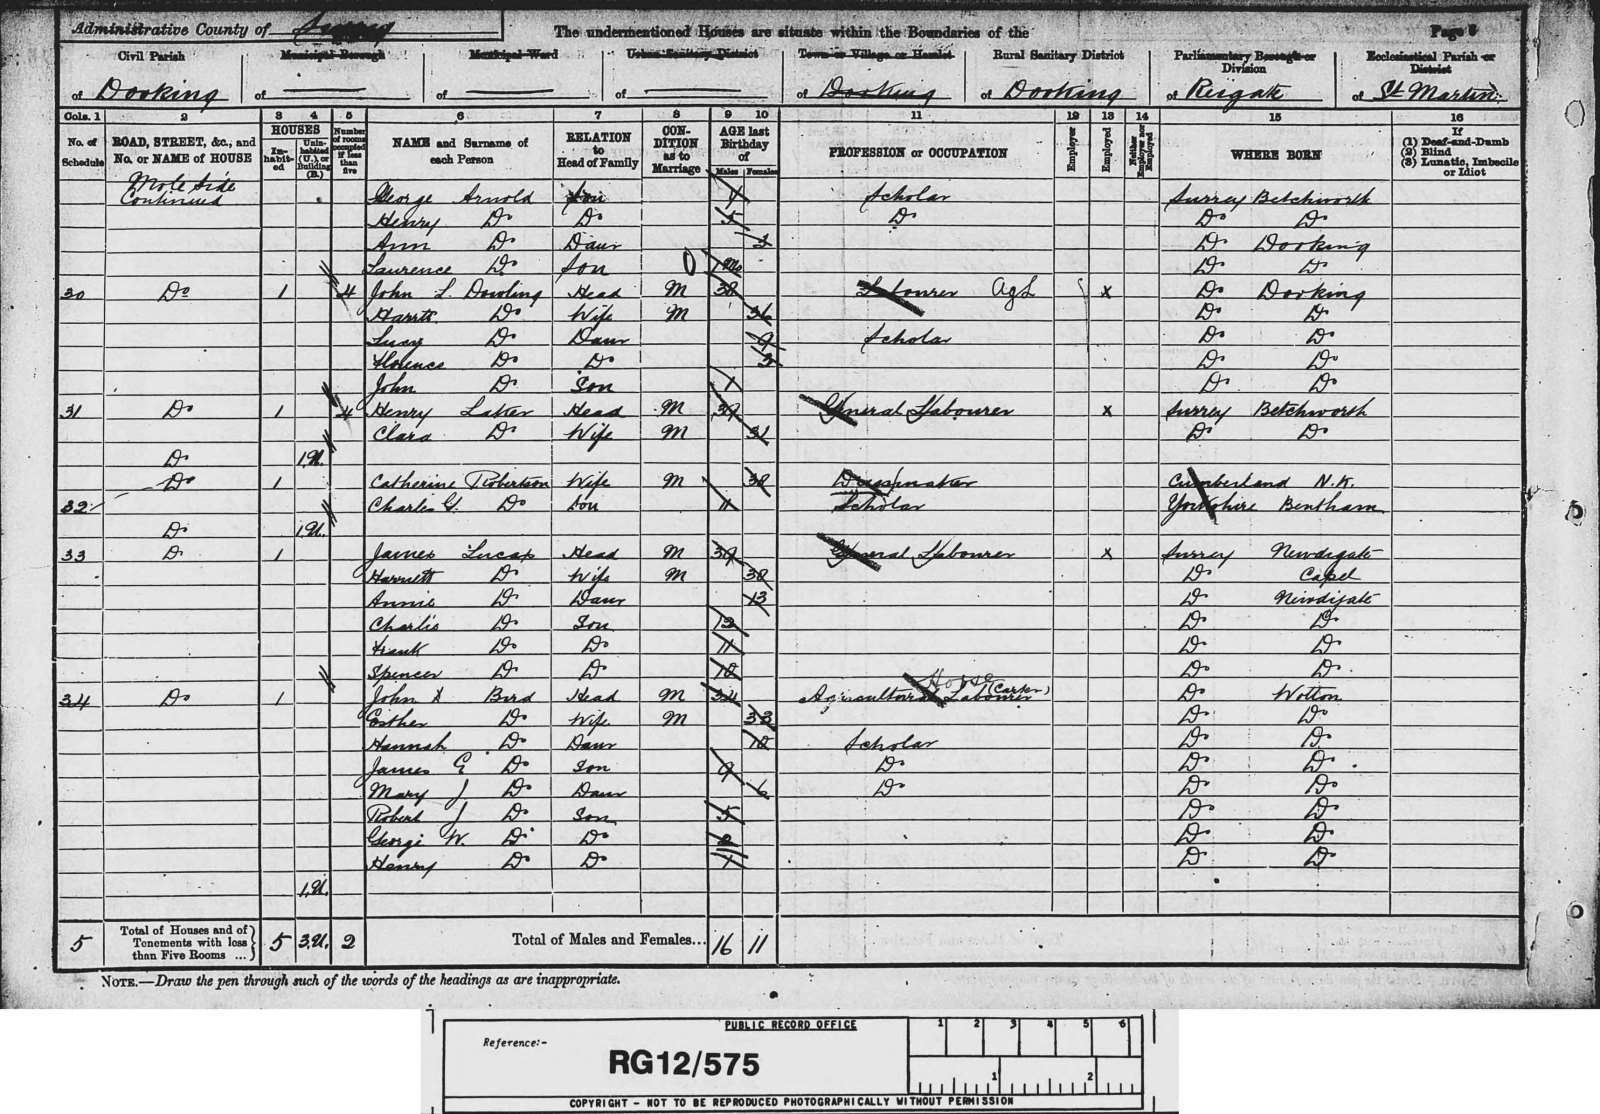 Administrative County of Surrey The undermentioned Houses are situate within the Boundaries of the Page 8
Civil Parish Municipal Borough Municipal Ward Urban Sanitary District Town or Village or Hamlet Rural Sanitary District Parliamentary Borough or Division Ecclesiastical Parish or District
of Dorking of of of of Dorking of Dorking of Reigate of St Martin's
Cols. 1 2 3 4 5 6 7 8 9 10 11 12 13 14 15 16
No. of Schedule ROAD, STREET, &c., and No. or NAME of HOUSE HOUSES Inhabited Uninhabited (U.), or Building (B.) Number of rooms occupied if less than five NAME and Surname of each Person RELATION to Head of Family CONDITION as to Marriage AGE last Birthday of Males Females PROFESSION or OCCUPATION Employer Employed Neither Employer nor Employed WHERE BORN If (1) Deaf-and-Dumb (2) Blind (3) Lunatic, Imbecile or Idiot
Mole Side Continued George Arnold Son Scholar Surrey Betchworth
Henry Do Do 5 Do Do Do
Ann Do Daur 3 Do Dorking
Laurence Do Son 1 Mo Do Do
30 Do 1 4 John L. Dowling Head M 38 Labourer AgL x Do Dorking
Harrtt Do Wife M 36 Do Do
Lucy Do Daur 9 Scholar Do Do
Florence Do Do 3 Do Do
John Do Son 1 Do Do
31 Do 1 4 Henry Laker Head M 39 General Labourer x Surrey Betchworth
Clara Do Wife M 31 Do Do
Do 1,U.
Do 1 Catherine Robertson Wife M 38 Dressmaker Cumberland N.K.
32 Charles G. Do Son 11 Scholar Yorkshire Bentham
Do 1,U.
33 Do 1 James Lucas Head M 39 General Labourer x Surrey Newdigate
Harriett Do Wife M 38 Do Capel
Annie Do Daur 13 Do Newdigate
Charlis Do Son 12 Do Do
Frank Do Do 11 Do Do
Spencer Do Do 10 Do Do
34 Do 1 John Bird Head M 34 Agricultural Labourer Horse (Carter) Do Wotton
Esther Do Wife M 33 Do Do
Hannah Do Daur 10 Scholar Do Do
James G Do Son 9 Do Do Do
Mary J Do Daur 6 Do Do Do
Robert J Do Son 5 Do Do
George W. Do Do 2 Do Do
Henry Do Do 1 Do Do
1,U.
5 Total of Houses and of Tenements with less than Five Rooms ... 5 3,U. 2 Total of Males and Females... 16 11
NOTE.—Draw the pen through such of the words of the headings as are inappropriate.
PUBLIC RECORD OFFICE 1 2 3 4 5 6
Reference:-
RG12/575
1 2
COPYRIGHT - NOT TO BE REPRODUCED PHOTOGRAPHICALLY WITHOUT PERMISSION